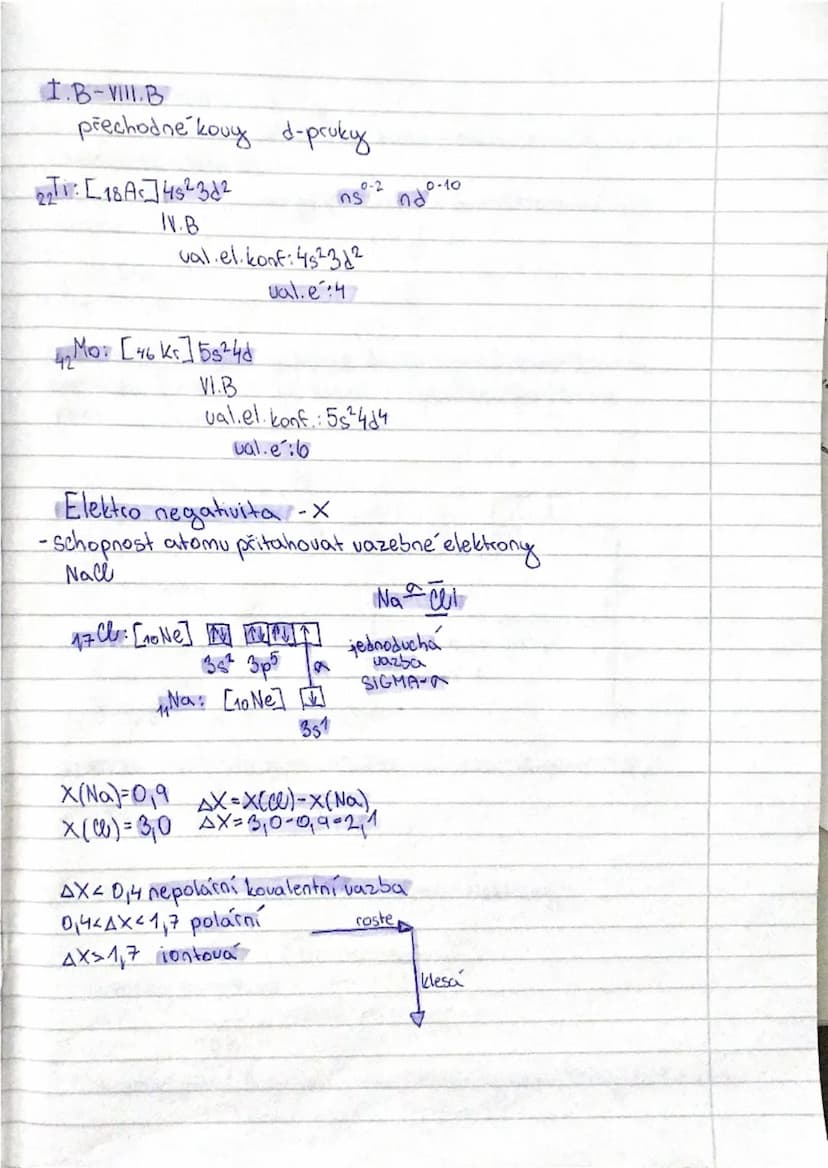 I.B-VIII.B
přechodné kovy d-prvky
22Ti: [18Ar] 4s² 3d² ns⁰⁻² nd⁰⁻¹⁰
IV.B
val.el.konf: 4s² 3d²
val.e⁻: 4
42Mo: [46 Kr] 5s² 4d
VI.B
val.el.konf.: 5s² 4d4
val.e⁻: 6
Elektro negativita - X
- schopnost atomu přitahovat vazebné elektrony
NaCl
Na σ Cl
17Cl: [10Ne] ↑↓ ↑↓ ↑↓ ↑ jednoduchá
3s² 3p⁵ σ vazba
SIGMA-σ
11Na: [10Ne] ↓
3s¹
X(Na)=0,9 ΔX = X(Cl)-X(Na)
X(Cl)=3,0 ΔX = 3,0-0,9=2,1
ΔX < 0,4 nepolární kovalentní vazba
0,4<ΔX<1,7 polární roste
ΔX>1,7 iontová
klesá